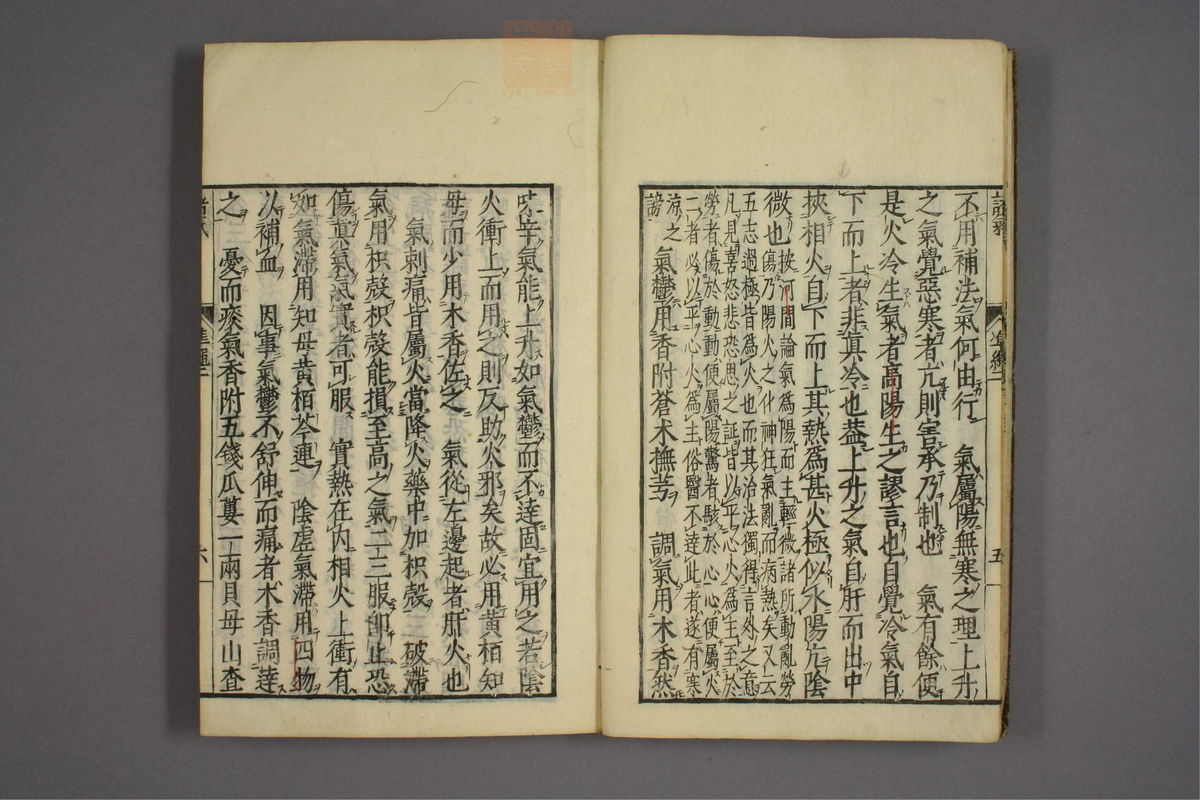 不用補法氣何由行　氣屬陽無寒之理上升
之氣覺惡寒者亢則害承乃制也　氣有餘便
是火冷生氣者高陽生之謬言也自覺冷氣自
下而上者非真冷也葢上升之氣自肝而出中
挾相火自下而上其熱爲甚火極似水陽亢陰
微也
按河間論氣爲陽而主輕微諸所動亂勞
傷乃陽火之化神狂氣亂而病熱矣又云
五志過極皆爲火也而其治法獨得言外之意
凡見喜怒悲恐思之証皆以平心火爲主至於
勞者傷於動動便屬陽驚者駭於心心便屬火
二者必以平心火爲主俗醫不達此者遂有寒
涼之
謗
氣鬱用香附蒼术撫芎　調氣用木香然
五
味辛氣能上升如氣鬱而不達固宜用之若陰
火衝上而用之則反助火邪矣故必用黄栢知
母而少用木香佐之　氣從左邊起者肝火也
氣刺痛皆屬火當降火藥中加枳殼　破滯
氣用枳殼枳殼能損至高之氣二三服即止恐
傷真氣氣實者可服　實熱在内相火上衝有
如氣滯用知母黄栢芩連　陰虚氣滯用四物
以補血　因事氣鬱不舒伸而痛者木香調達
之　憂而痰氣香附五錢瓜蔞一兩貝母山查
六